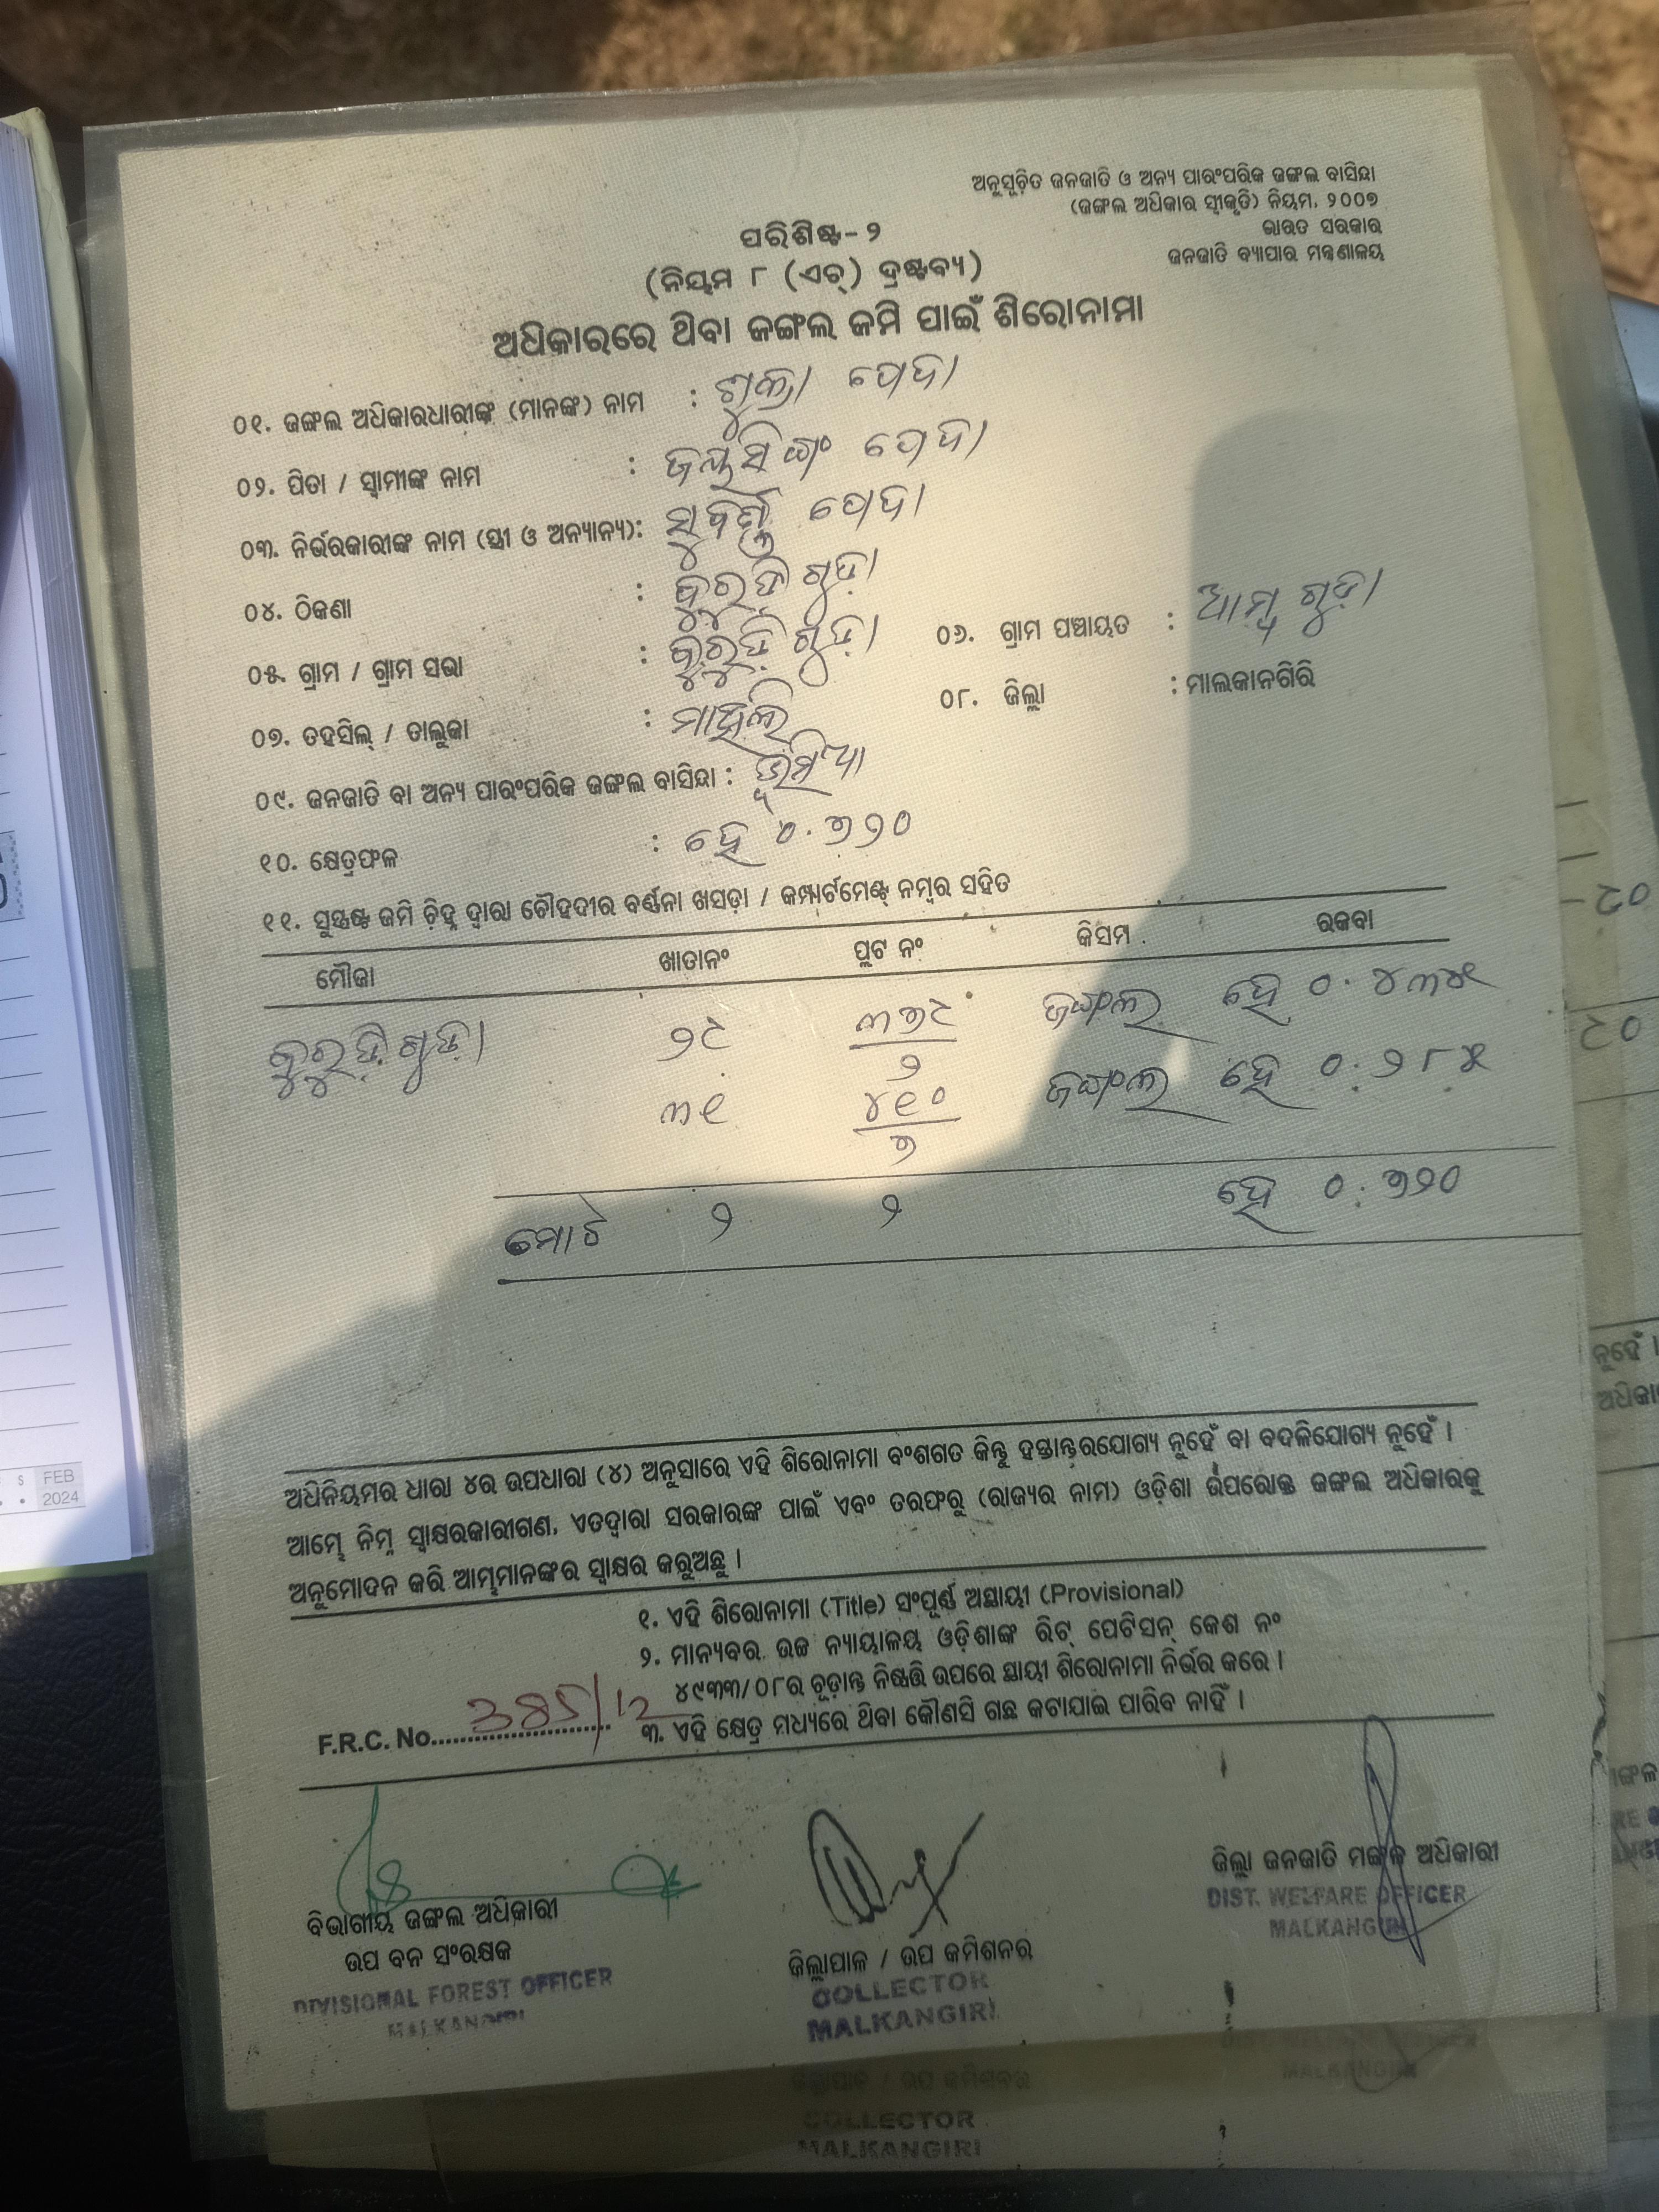 ଅନୁସୂଚିତ ଜନଜାତି ଓ ଅନ୍ୟ ପାରଂପରିକ ଜଙ୍ଗଲ ବାସିନ୍ଦା
(ଜଙ୍ଗଲ ଅଧିକାର ସ୍ୱୀକୃତି) ନିୟମ, ୨୦୦୭
ଭାରତ ସରକାର
ଜନଜାତି ବ୍ୟାପାର ମନ୍ତ୍ରଣାଳୟ
ପରିଶିଷ୍ଟ-୨
(ନିୟମ ୮ (ଏଚ୍) ଦ୍ରଷ୍ଟବ୍ୟ)
ଅଧିକାରରେ ଥିବା ଜଙ୍ଗଲ ଜମି ପାଇଁ ଶିରୋନାମା
୦୧. ଜଙ୍ଗଲ ଅଧିକାରଧାରୀଙ୍କ (ମାନଙ୍କ) ନାମ : ଶୁକ୍ରା ପେଦା
୦୨. ପିତା / ସ୍ୱାମୀଙ୍କ ନାମ : ଜୟସିଂ ପେଦା
୦୩. ନିର୍ଭରକାରୀଙ୍କ ନାମ (ସ୍ତ୍ରୀ ଓ ଅନ୍ୟାନ୍ୟ): ସୁବର୍ଣ୍ଣ ପେଦା
୦୪. ଠିକଣା : କୁରୁଡ଼ିଗୁଡ଼ା
୦୫. ଗ୍ରାମ / ଗ୍ରାମ ସଭା : କୁରୁଡ଼ିଗୁଡ଼ା ୦୬. ଗ୍ରାମ ପଞ୍ଚାୟତ : ଆମ୍ବଗୁଡ଼ା
୦୭. ତହସିଲ୍ / ତାଲୁକା : ମାଥିଲି ୦୮. ଜିଲ୍ଲା : ମାଲକାନଗିରି
୦୯. ଜନଜାତି ବା ଅନ୍ୟ ପାରଂପରିକ ଜଙ୍ଗଲ ବାସିନ୍ଦା : ଭୂମିଆ
୧୦. କ୍ଷେତ୍ରଫଳ : ହେ ୦.୭୨୦
୧୧. ସୁସ୍ପଷ୍ଟ ଜମି ଚିହ୍ନ ଦ୍ୱାରା ଚୌହଦୀର ବର୍ଣ୍ଣନା ଖସଡ଼ା / କମ୍ପାର୍ଟମେଣ୍ଟ୍ ନମ୍ବର ସହିତ
ମୌଜା ଖାତାନଂ ପ୍ଲଟ ନଂ କିସମ ରକବା
କୁରୁଡ଼ିଗୁଡ଼ା ୨୯ ୩୭୯/୨ ଜଙ୍ଗଲ ହେ ୦.୪୩୫
୩୧ ୪୧୦/୭ ଜଙ୍ଗଲ ହେ ୦.୨୮୫
ମୋଟ ୨ ୨ ହେ ୦.୭୨୦
ଅଧିନିୟମର ଧାରା ୪ର ଉପଧାରା (୪) ଅନୁସାରେ ଏହି ଶିରୋନାମା ବଂଶଗତ କିନ୍ତୁ ହସ୍ତାନ୍ତରଯୋଗ୍ୟ ନୁହେଁ ବା ବଦଳିଯୋଗ୍ୟ ନୁହେଁ ।
ଆମ୍ଭେ ନିମ୍ନ ସ୍ୱାକ୍ଷରକାରୀଗଣ, ଏତଦ୍ୱାରା ସରକାରଙ୍କ ପାଇଁ ଏବଂ ତରଫରୁ (ରାଜ୍ୟର ନାମ) ଓଡ଼ିଶା ଉପରୋକ୍ତ ଜଙ୍ଗଲ ଅଧିକାରକୁ
ଅନୁମୋଦନ କରି ଆମ୍ଭମାନଙ୍କର ସ୍ୱାକ୍ଷର କରୁଅଛୁ ।
୧. ଏହି ଶିରୋନାମା (Title) ସଂପୂର୍ଣ୍ଣ ଅସ୍ଥାୟୀ (Provisional)
୨. ମାନ୍ୟବର ଉଚ୍ଚ ନ୍ୟାୟାଳୟ ଓଡ଼ିଶାଙ୍କ ରିଟ୍ ପେଟିସନ୍ କେଶ ନଂ
୪୯୩୩/୦୮ର ଚୂଡ଼ାନ୍ତ ନିଷ୍ପତ୍ତି ଉପରେ ସ୍ଥାୟୀ ଶିରୋନାମା ନିର୍ଭର କରେ ।
୩. ଏହି କ୍ଷେତ୍ର ମଧ୍ୟରେ ଥିବା କୌଣସି ଗଛ କଟାଯାଇ ପାରିବ ନାହିଁ ।
F.R.C. No. 385/12
ବିଭାଗୀୟ ଜଙ୍ଗଲ ଅଧିକାରୀ
ଉପ ବନ ସଂରକ୍ଷକ
DIVISIONAL FOREST OFFICER
MALKANGIRI
ଜିଲ୍ଲାପାଳ / ଉପ କମିଶନର
COLLECTOR
MALKANGIRI
ଜିଲ୍ଲା ଜନଜାତି ମଙ୍ଗଳ ଅଧିକାରୀ
DIST. WELFARE OFFICER
MALKANGIRI
ଜିଲ୍ଲାପାଳ / ଉପ କମିଶନର
COLLECTOR
MALKANGIRI
MALKANGIRI
FEB
2024
ନୁହେଁ ।